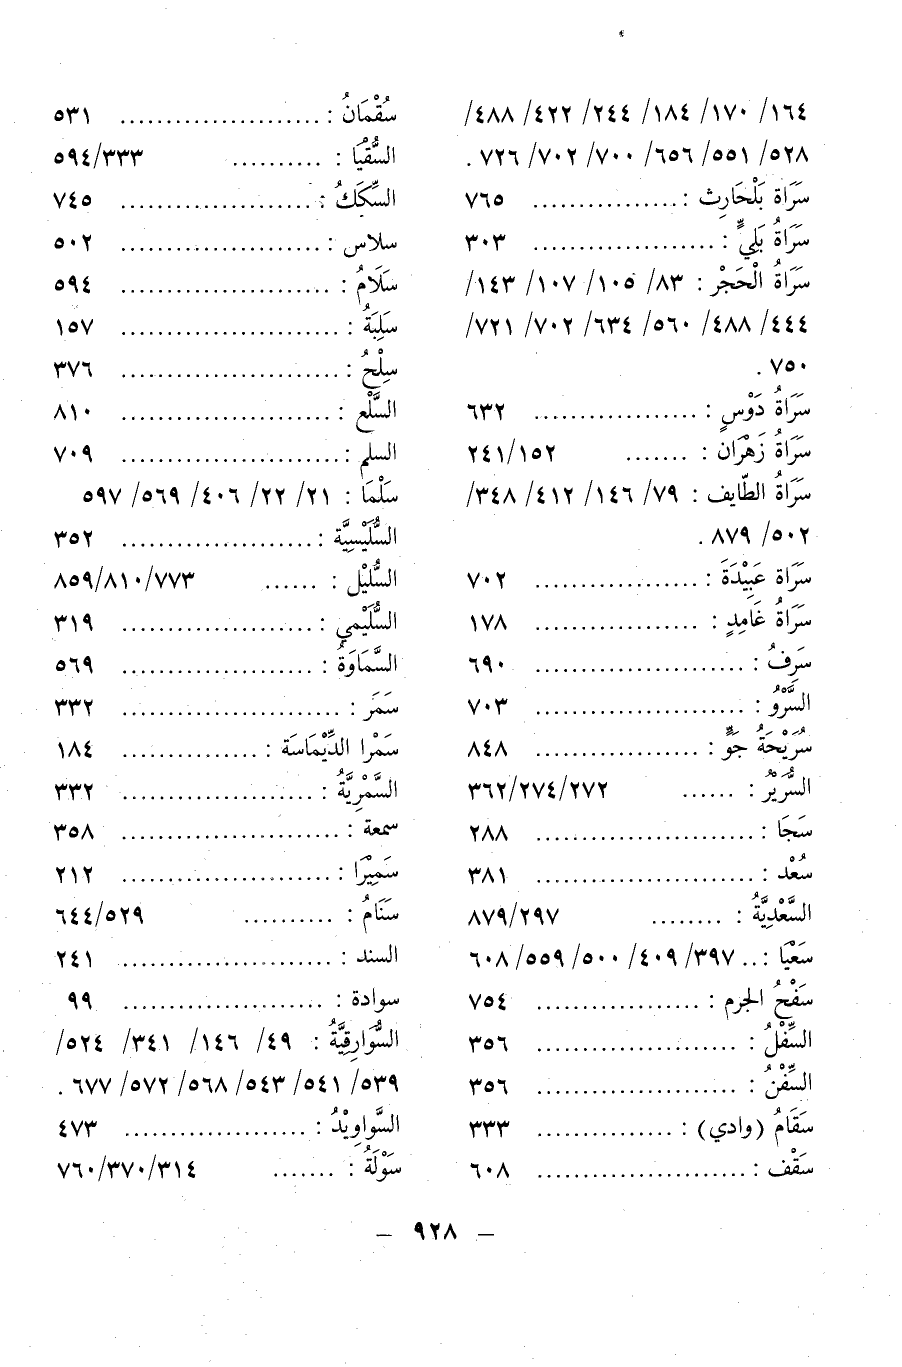 ١٦٤/ ١٧٠/ ١٨٤/ ٢٤٤/ ٤٢٢/ ٤٨٨/
٥٢٨/ ٥٥١/ ٦٥٦/ ٧٠٠/ ٧٠٢/ ٧٢٦ .
سَرَاة بَلْحَارِث : ................ ٧٦٥
سَرَاةُ بَلِيٍّ : ................... ٣٠٣
سَرَاةُ الْحَجْر : ٨٣/ ١٠٥/ ١٠٧/ ١٤٣/
٤٤٤/ ٤٨٨/ ٥٦٠/ ٦٣٤/ ٧٠٢/ ٧٢١/
٧٥٠ .
سَرَاةُ دَوْسٍ : .................. ٦٣٢
سَرَاةُ زَهْرَان : ....... ٢٤١/١٥٢
سَرَاةُ الطَّايف : ٧٩/ ١٤٦/ ٤١٢/ ٣٤٨/
٥٠٢/ ٨٧٩ .
سَرَاة عَبِيْدَةَ : .................. ٧٠٢
سَرَاةُ غَامِدٍ : .................. ١٧٨
سَرِفُ : ...................... ٦٩٠
السَّرْوُ : ...................... ٧٠٣
سُرَيْحَةُ جَوٍّ : .................. ٨٤٨
السُّرَيْرُ : ...... ٣٦٢/٢٧٤/٢٧٢
سَجَا : ....................... ٢٨٨
سُعْد : ....................... ٣٨١
السَّعْدِيَّةُ : ........ ٨٧٩/٢٩٧
سَعْيَا : .. ٣٩٧/ ٤٠٩/ ٥٠٠/ ٥٥٩/ ٦٠٨
سَفْحُ الجرم : ................. ٧٥٤
السِّفْلُ : ..................... ٣٥٦
السِّفْنُ : ..................... ٣٥٦
سَقَامُ (وادي) : ............... ٣٣٣
سَقْف : ...................... ٦٠٨
سُقْمَانُ : ..................... ٥٣١
السُّقْيَا : .......... ٥٩٤/٣٣٣
السِّكَكُ : .................... ٧٤٥
سلاس : ..................... ٥٠٢
سَلَامُ : ...................... ٥٩٤
سَلِبَةُ : ....................... ١٥٧
سِلْحُ : ....................... ٣٧٦
السَّلْع : ...................... ٨١٠
السلم : ....................... ٧٠٩
سَلْمَا : ٢١/ ٢٢/ ٤٠٦/ ٥٦٩/ ٥٩٧
السُّلَيْسِيَّة : .................... ٣٥٢
السُّلَيْل : ...... ٨٥٩/٨١٠/٧٧٣
السُّلَيْمي : .................... ٣١٩
السَّمَاوَةُ : .................... ٥٦٩
سَمَر : ....................... ٣٣٢
سَمْرا الدِّيْمَاسَة : .............. ١٨٤
السَّمْرِيَّةُ : .................... ٣٣٢
سمعة : ....................... ٣٥٨
سَمِيْرَا : ...................... ٢١٢
سَنَامُ : .......... ٦٤٤/٥٢٩
السند : ...................... ٢٤١
سوادة : ..................... ٩٩
السُّوَارِقِيَّةُ : ٤٩/ ١٤٦/ ٣٤١/ ٥٢٤/
٥٣٩/ ٥٤١/ ٥٤٣/ ٥٦٨/ ٥٧٢/ ٦٧٧ .
السَّواوِيْدُ : ................... ٤٧٣
سَوْلَةُ : ....... ٧٦٠/٣٧٠/٣١٤
— ٩٢٨ —